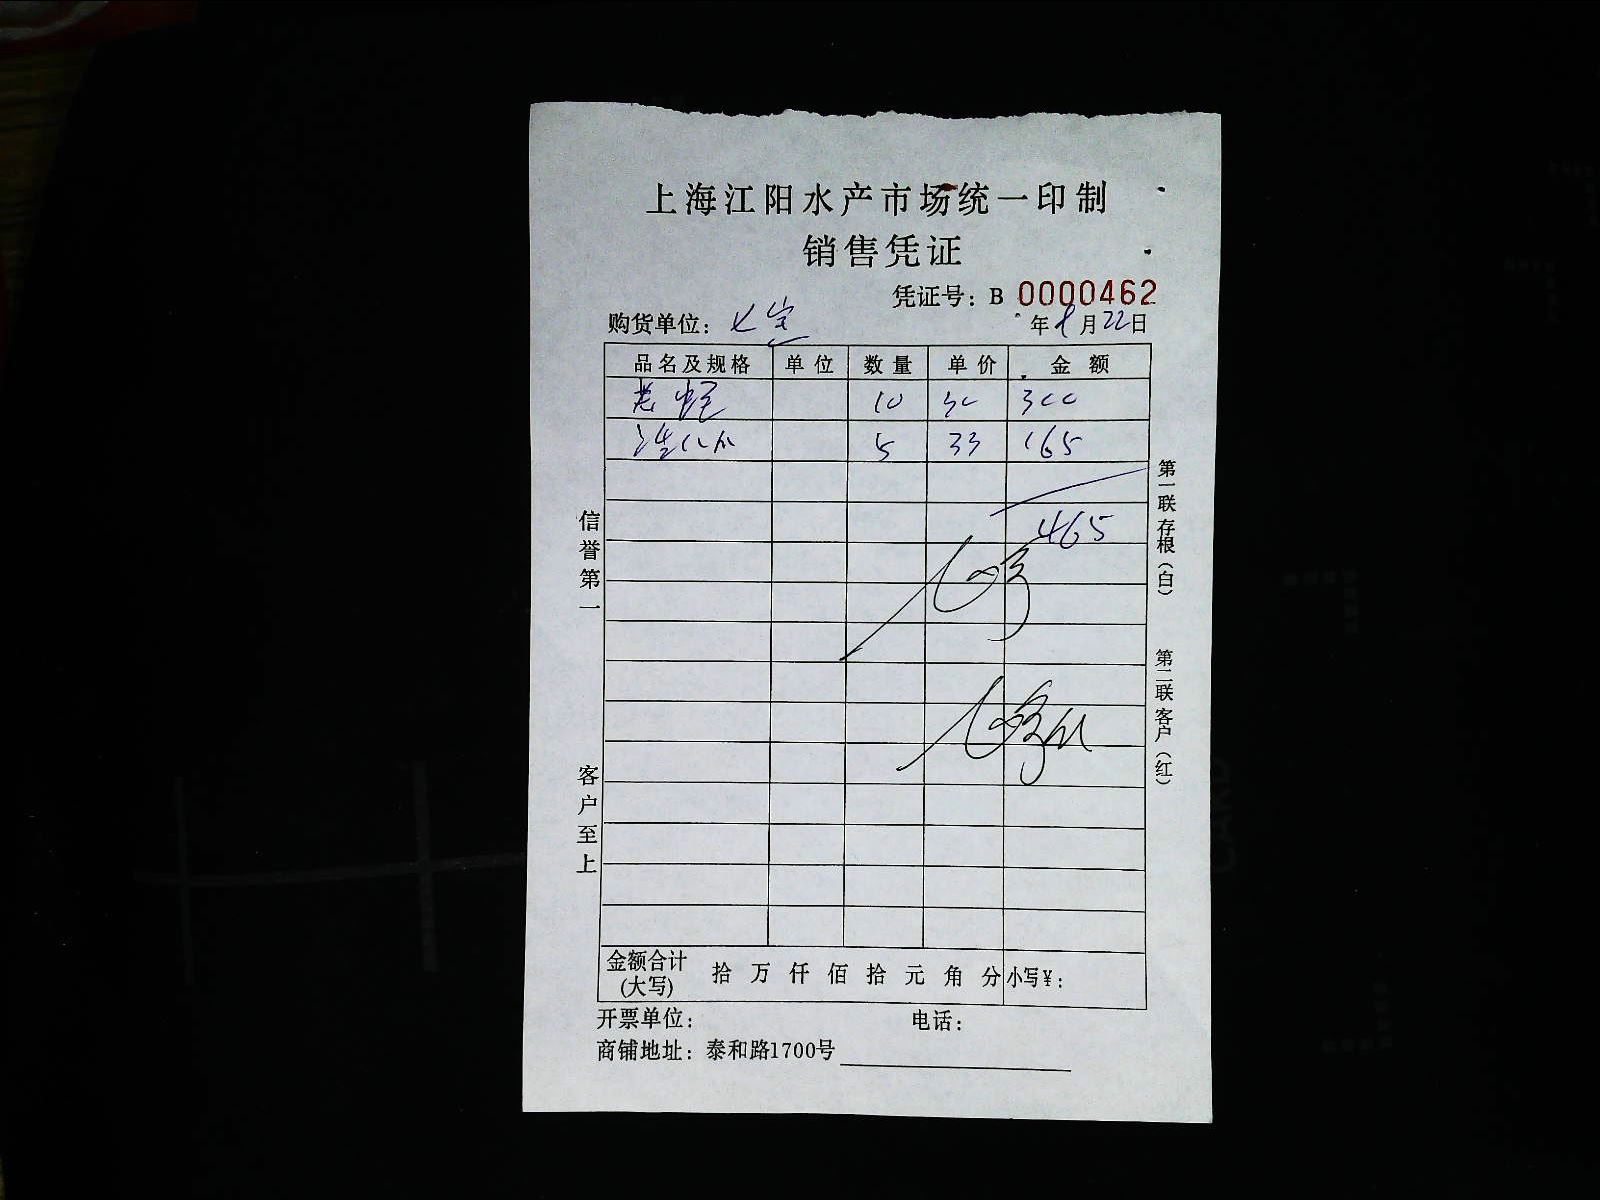 上海江阳水产市场统一印制
销售凭证
凭证号：B 0000462
购货单位：七宝 年 8 月 22 日
品名及规格 单位 数量 单价 金额
10 30 300
5 33 165
465
信誉第一
客户至上
第一联存根（白）
第二联客户（红）
金额合计(大写) 拾 万 仟 佰 拾 元 角 分 小写¥：
开票单位： 电话：
商铺地址：泰和路1700号